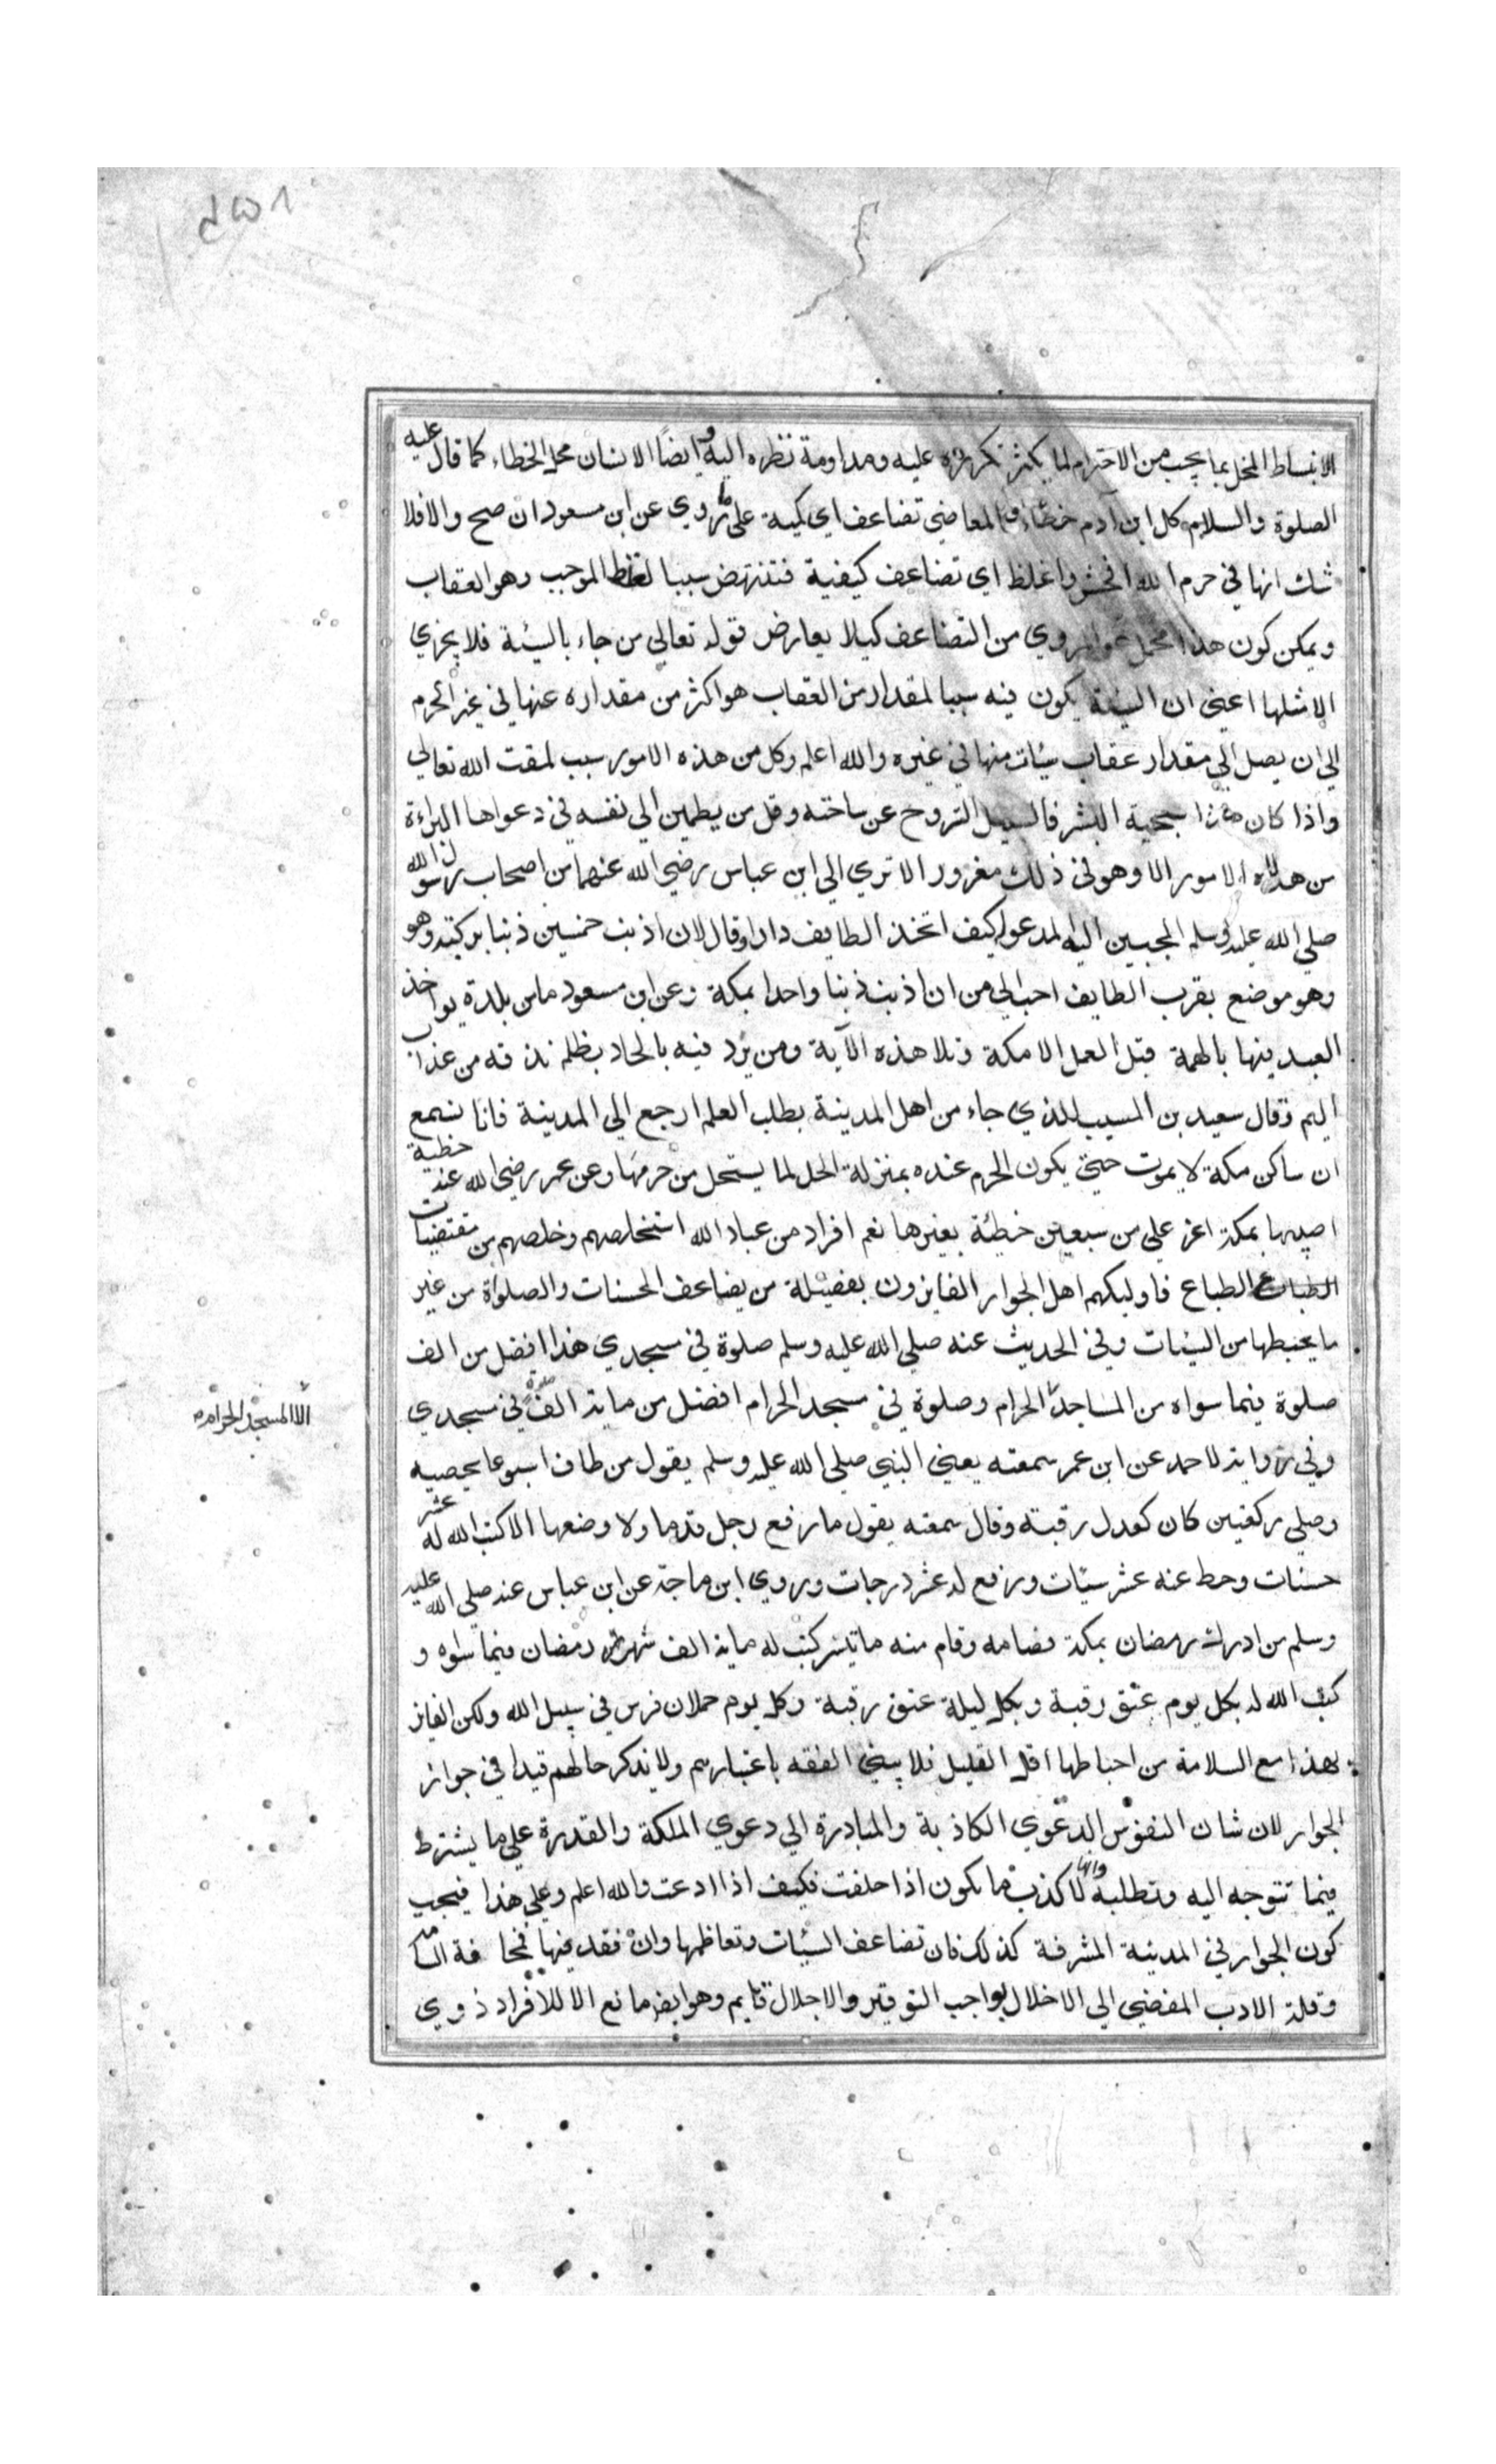 ٨٥٢
الانبساط المخل بما يجب من الاحترام لما يكثر تكرره عليه ومداومة نظره اليه وايضًا الانسان محل الخطاء كما قال عليه
الصلوة والسلام كل ابن آدم خطاء والمعاصي تضاعف اي كمية على ما روي عن ابن مسعود ان صح والا فلا
شك انها في حرم الله افحش واغلظ اي تضاعف كيفية فتنتهض سببا لغلظ الموجب وهو العقاب
ويمكن كون هذا محمل المروي من التضاعف كيلا يعارض قوله تعالي من جاء بالسيئة فلا يجزي
الا مثلها اعني ان السيئة يكون فيه سببا لمقدار من العقاب هو اكثر من مقداره عنها في غير الحرم
الي ان يصل الي مقدار عقاب سيئات منها في غيره والله اعلم وكل من هذه الامور سبب لمقت الله تعالي
واذا كان هذا سجية البشر فالسبيل التروح عن ساحته وقل من يطمين الي نفسه في دعواها البراءة
من هذه الامور الا وهو في ذلك مغرور الا تري الي ابن عباس رضي الله عنهما من اصحاب رسول الله
صلي الله عليه وسلم المحببين اليه المدعو له كيف اتخذ الطايف دارا وقال لان اذنب خمسين ذنبا بركبة وهو
وهو موضع بقرب الطايف احب الي من ان اذنب ذنبا واحدا بمكة وعن ابن مسعود ما من بلدة يواخذ
العبد فيها بالهمة قبل العمل الا مكة وتلا هذه الآية ومن يرد فيه بالحاد بظلم نذقه من عذاب
اليم وقال سعيد بن المسيب للذي جاء من اهل المدينة بطلب العلم ارجع الي المدينة فانا نسمع
ان ساكن مكة لا يموت حتي يكون الحرم عنده بمنزلة الحل لما يستحل من حرمها وعن عمر رضي الله عنه خطية
اصيبها بمكة اعز علي من سبعين خطئة بغيرها نعم افراد من عباد الله استخلصهم وخلصهم من مقتضيات
الطباع الطباع فاوليكهم اهل الجوار الفايزون بفضيلة من يضاعف الحسنات والصلوة من غير
ما يحبطها من السيئات وفي الحديث عنه صلي الله عليه وسلم صلوة في مسجدي هذا افضل من الف
صلوة فيما سواه من المساجد الحرام وصلوة في مسجد الحرام افضل من ماية الف صلوة في مسجدي
الا المسجد الحرام
وفي رواية لاحمد عن ابن عمر سمعته يعني النبي صلي الله عليه وسلم يقول من طاف اسبوعا يحصيه
وصلي ركعتين كان كعدل رقبة وقال سمعته يقول ما رفع رجل قدما ولا وضعها الا كتب الله له عشر
حسنات وحط عنه عشر سيئات ورفع له عشر درجات وروي ابن ماجة عن ابن عباس عنه صلي الله عليه
وسلم من ادرك رمضان بمكة فصامه وقام منه ما تيسر كتب له ماية الف شهر رمضان فيما سواه و
كتب الله له بكل يوم عتق رقبة وبكل ليلة عتق رقبة وكل يوم حملان فرس في سبيل الله ولكن الفايز
بهذا مع السلامة من احباطها اقل القليل فلا يبني الفقه باعتبارهم ولا يذكر حالهم قيدا في جواز
الجوار لان شان النفوس الدعوي الكاذبة والمبادرة الي دعوي الملكة والقدرة علي ما يشترط
فيما تتوجه اليه وتطلبه وانها لاكذب ما يكون اذا حلفت فكيف اذا ادعت والله اعلم وعلي هذا فيجب
كون الجوار في المدينة المشرفة كذلك فان تضاعف السيئات وتعاظمها وان فقد فيها فمخافة السامه
وقلة الادب المفضي الي الاخلال بواجب التوقير والاجلال قايم وهو ايضا مانع الا للافراد ذوي